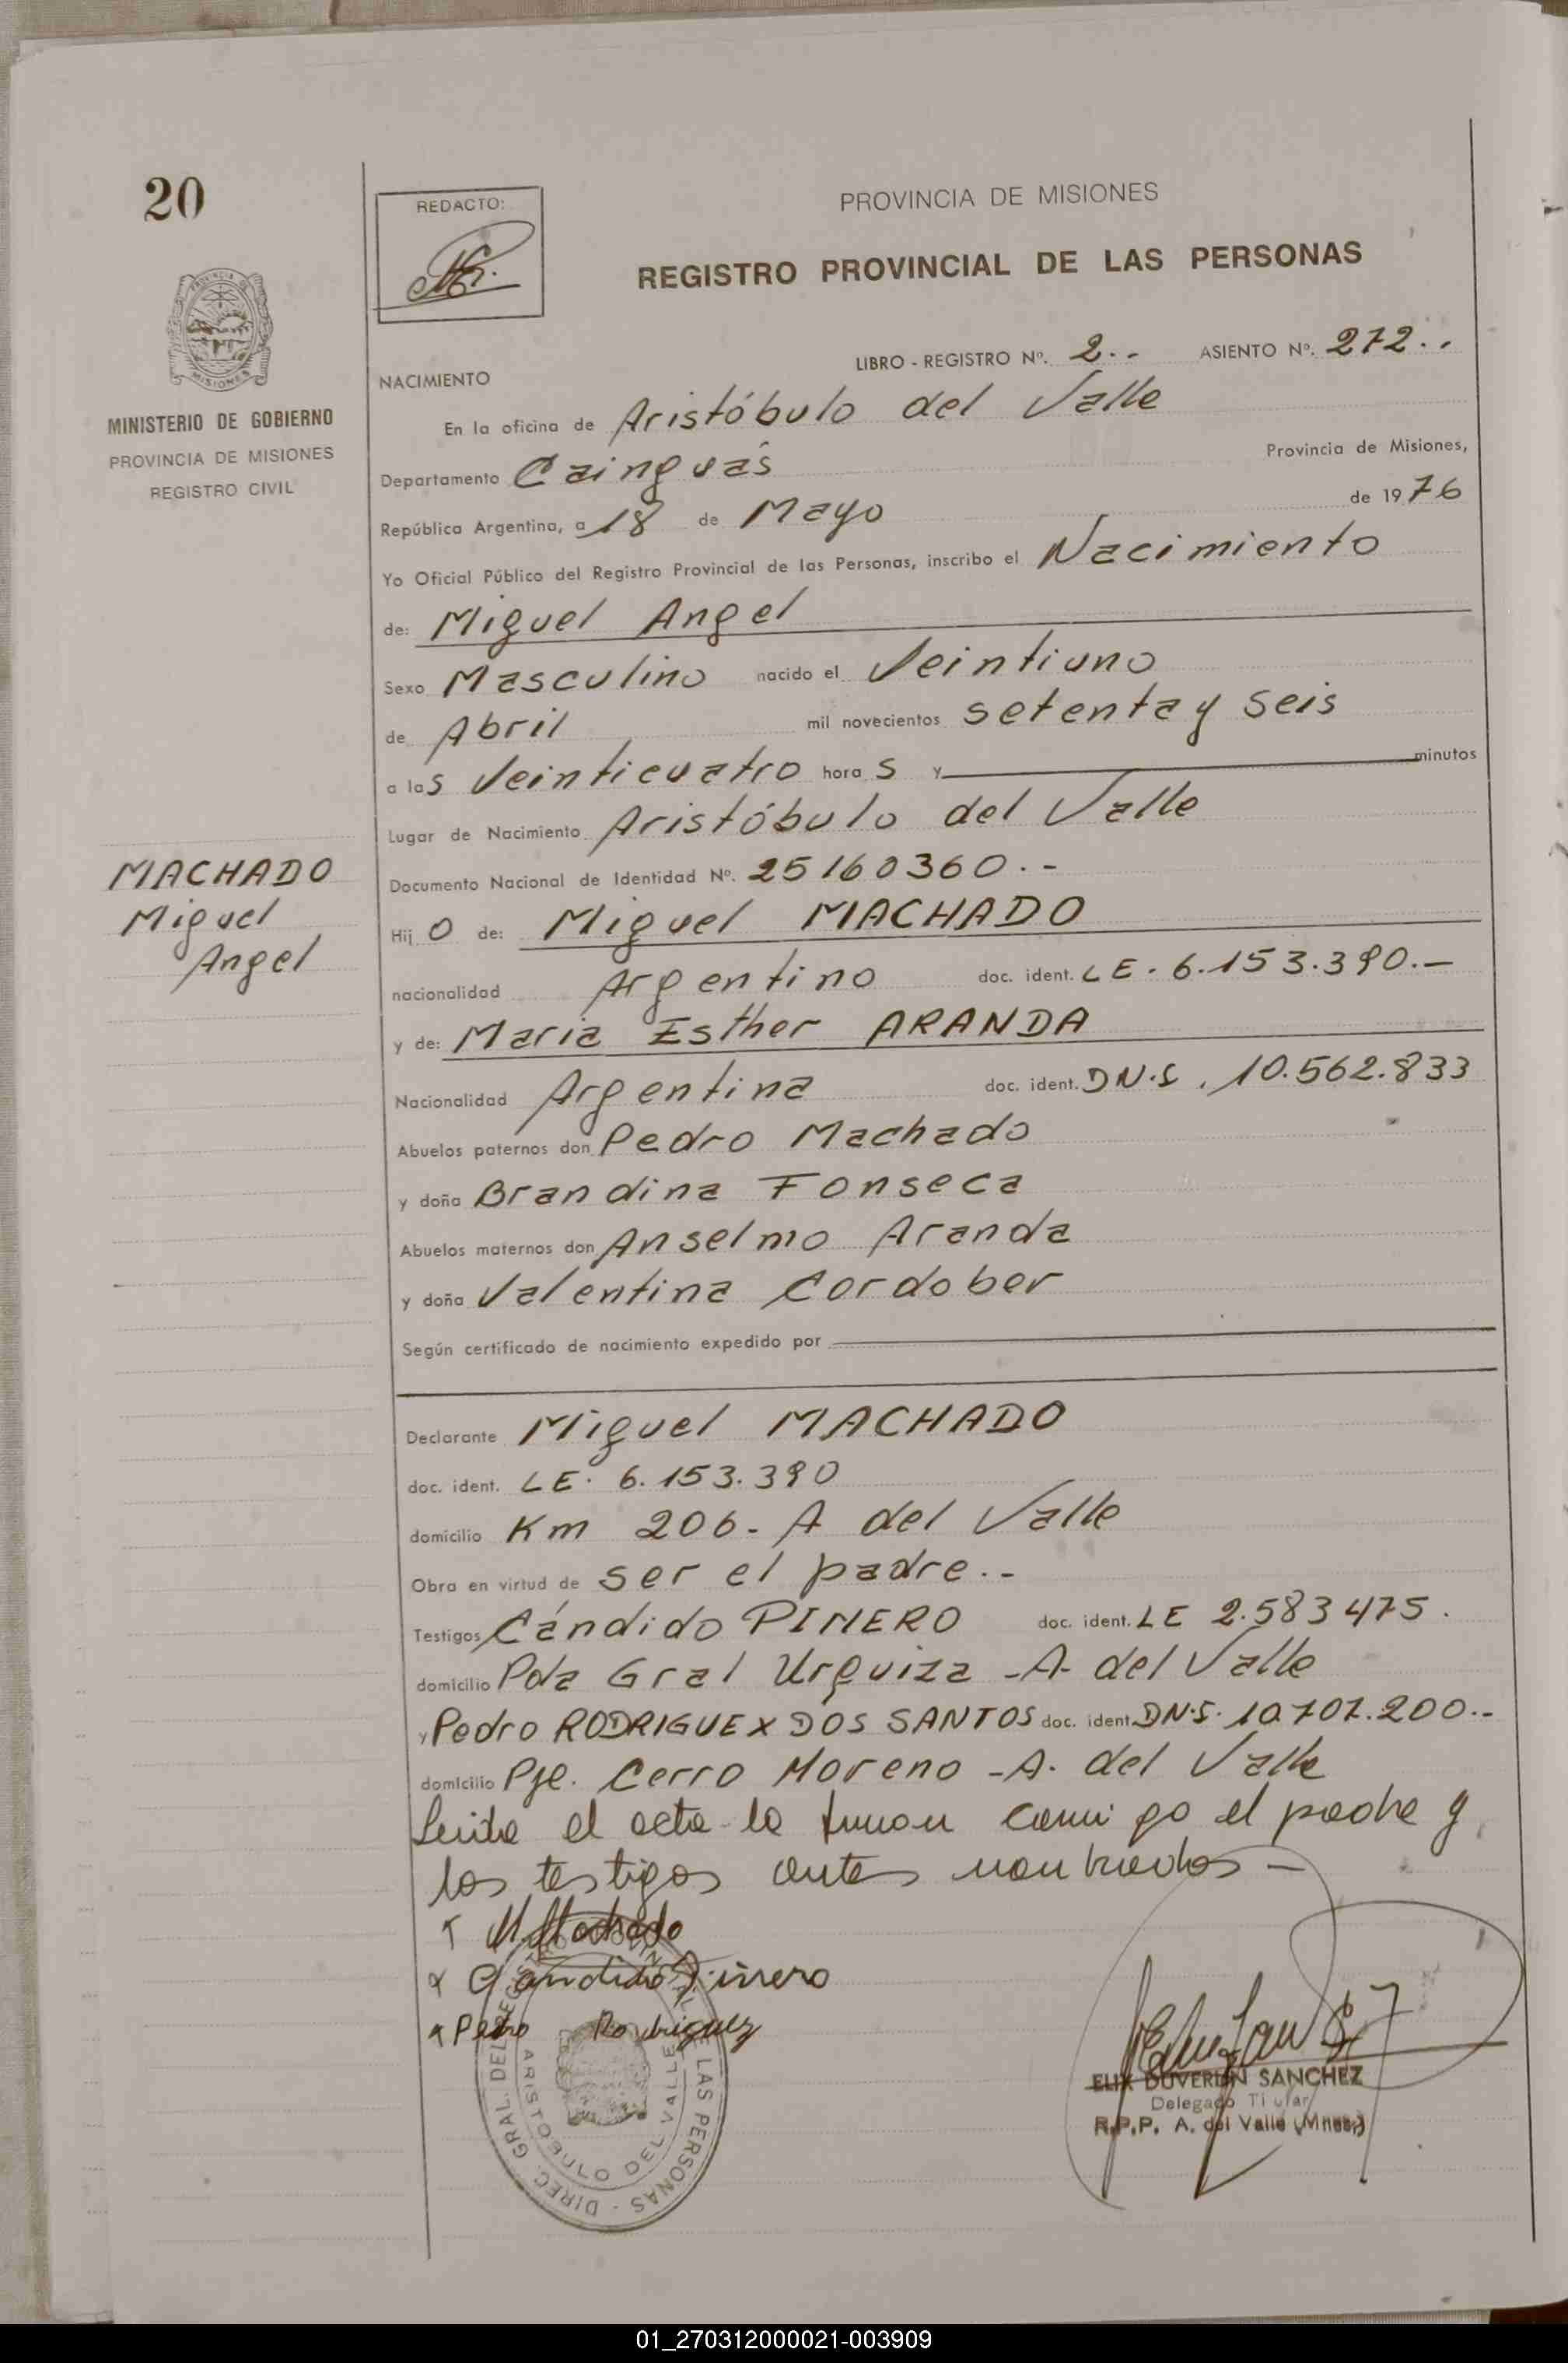 20
PROVINCIA DE
MISIONES
MINISTERIO DE GOBIERNO
PROVINCIA DE MISIONES
REGISTRO CIVIL
MACHADO
Miguel
Angel
REDACTO:
PROVINCIA DE MISIONES
REGISTRO PROVINCIAL DE LAS PERSONAS
LIBRO - REGISTRO Nº. 2.. ASIENTO Nº. 272..
NACIMIENTO
En la oficina de Aristóbulo del Valle
Departamento Cainguás Provincia de Misiones,
República Argentina, a 18 de Mayo de 1976
Yo Oficial Público del Registro Provincial de las Personas, inscribo el Nacimiento
de: Miguel Angel
Sexo Masculino nacido el Veintiuno
de Abril mil novecientos setenta y seis
a las Veinticuatro horas y minutos
Lugar de Nacimiento Aristóbulo del Valle
Documento Nacional de Identidad Nº. 25160360.-
Hijo de: Miguel MACHADO
nacionalidad Argentino doc. ident. LE. 6.153.390.-
y de: Maria Esther ARANDA
Nacionalidad Argentina doc. ident. DN.I. 10.562.833
Abuelos paternos don Pedro Machado
y doña Brandina Fonseca
Abuelos maternos don Anselmo Aranda
y doña Valentina Cordober
Según certificado de nacimiento expedido por
Declarante Miguel MACHADO
doc. ident. LE. 6.153.390
domicilio Km 206. A del Valle
Obra en virtud de ser el padre..-
Testigos Cándido PIÑERO doc. ident. LE 2.583475.
domicilio Pda Gral Urquiza -A- del Valle
y Pedro RODRIGUEX DOS SANTOS doc. ident. DN.I. 10.707.200.-
domicilio Pje. Cerro Moreno -A. del Valle
Leida el acta la firman conmigo el padre y
los testigos antes nombrados -
M. Machado
Candido Piñero
Pedro Rodriguez
DIREC. GRAL. DEL REGISTRO PROVINCIAL DE LAS PERSONAS
ARISTOBULO DEL VALLE
ELIX DUVERLIN SANCHEZ
Delegado Titular
R.P.P. A. del Valle (Mnes.)
01_270312000021-003909